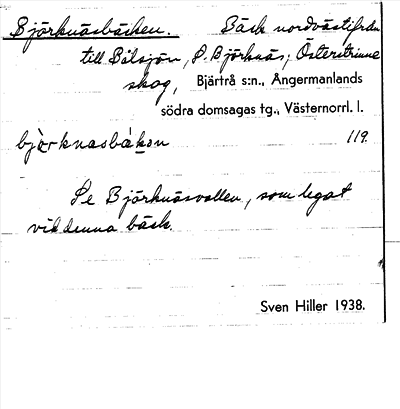 Björknäsbäcken. Bäck nordvästifrån
till Bålsjön, S. Björknäs; Österstrinne
skog, Bjärtrå s:n., Ångermanlands
södra domsagas tg., Västernorrl. l.
bjö̀rknasbäkən 119.
Se Björknäsvallen, som legat
vid denna bäck.
Sven Hiller 1938.